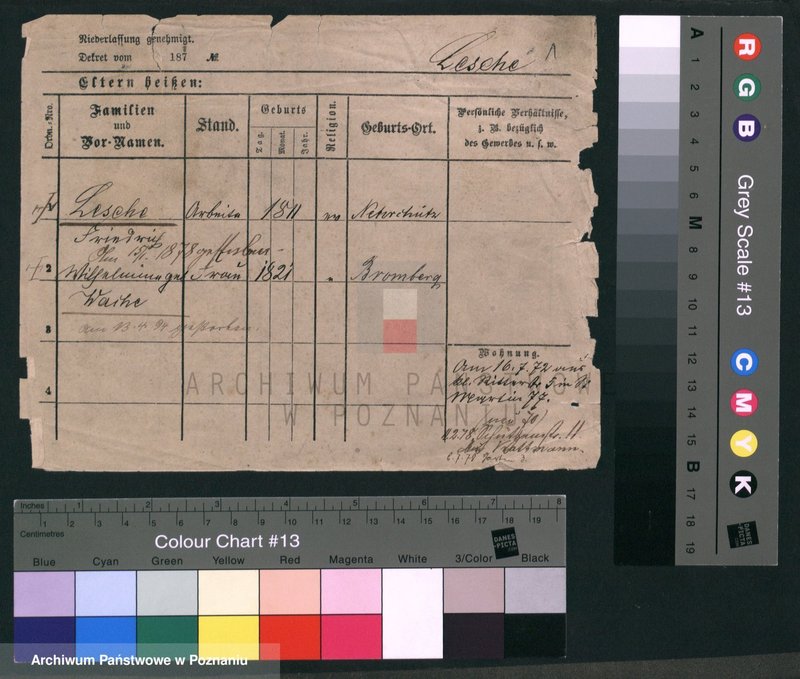 Niederlassung genehmigt.
Dekret vom 187 №
Lesche
Eltern heißen:
Ordn.-Nro.
Familien
und
Vor-Namen.
Stand.
Geburts
Tag.
Monat.
Jahr.
Religion.
Geburts-Ort.
Persönliche Verhältnisse,
z. B. bezüglich
des Gewerbes u. s. w.
Lesche Arbeite 1811 ev
Friedrich
1878 gestorben
2 Wilhelmine geb Frau 1821 " Bromberg
3
am 13.4.94 gestorben.
4
Wohnung.
Am 16.7.72 aus
kl. Ritterstr. 5 in St.
Martin 77.
ARCHIWUM PAŃSTWOWE
W POZNANIU
Inches 1 2 3 4 5 6 7 8
1 2 3 4 5 6 7 8 9 10 11 12 13 14 15 16 17 18 19
Centimetres
Colour Chart #13
DANES
-PICTA
.COM
Blue Cyan Green Yellow Red Magenta White 3/Color Black
Archiwum Państwowe w Poznaniu
A 1 2 3 4 5 6 M 8 9 10 11 12 13 14 15 B 17 18 19
R G B
Grey Scale #13
C M Y K
DANES
-PICTA
.COM